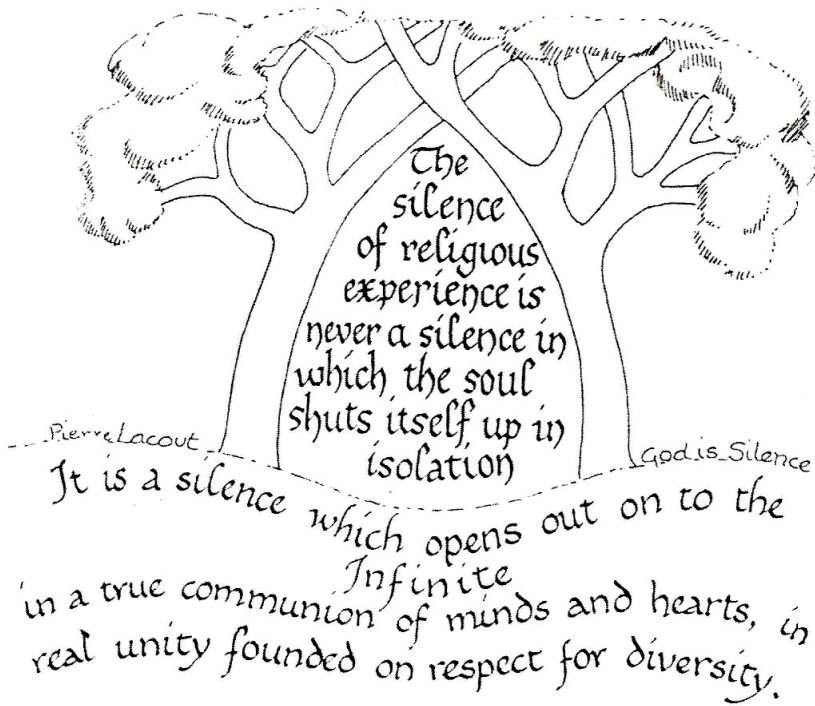 The
silence
of religious
experience is
never a silence in
which the soul
shuts itself up in
isolation
Pierre Lacout
God is Silence
It is a silence which opens out on to the
Infinite
in a true communion of minds and hearts, in
real unity founded on respect for diversity.